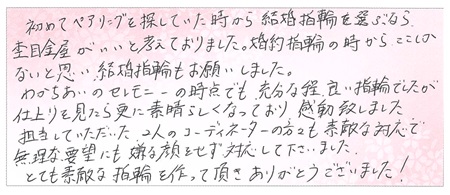 初めてペアリングを探していた時から結婚指輪を選ぶなら
杢目金屋がいいと考えておりました。婚約指輪の時からここしか
ないと思い、結婚指輪もお願いしました。
わかちあいのセレモニーの時点でも、充分な程、良い指輪でしたが
仕上りを見たら更に素晴らしくなっており感動致しました
担当していただいた2人のコーディネーターの方々も素敵な対応で
無理な要望にも嫌な顔をせず対応して下さいました。
とても素敵な指輪を作って頂きありがとうございました!